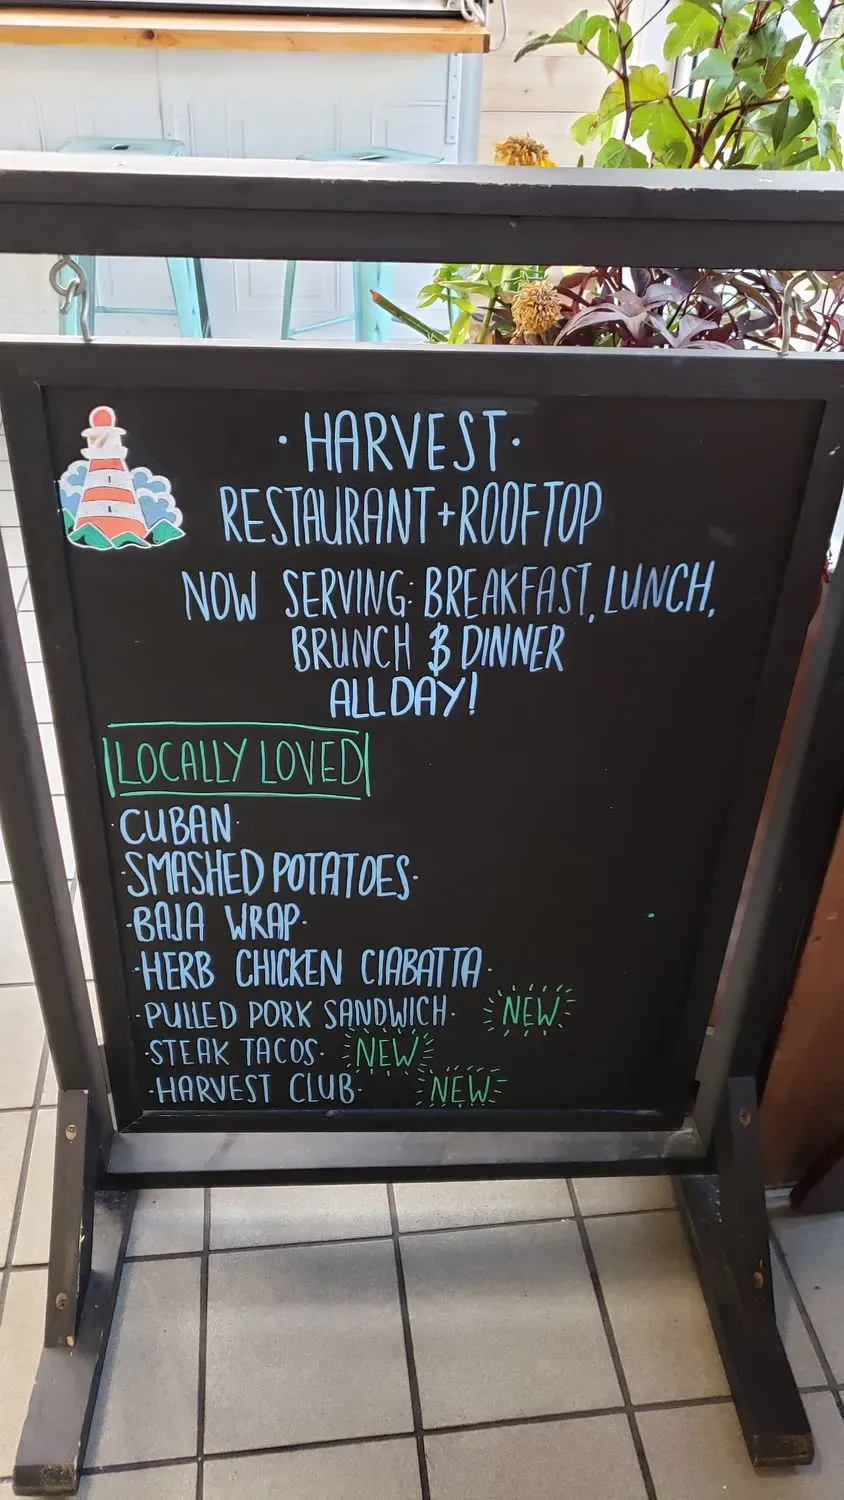 ·HARVEST·
RESTAURANT+ROOFTOP
NOW SERVING: BREAKFAST, LUNCH,
BRUNCH & DINNER
ALL DAY!
LOCALLY LOVED
·CUBAN·
·SMASHED POTATOES·
·BAJA WRAP·
·HERB CHICKEN CIABATTA·
·PULLED PORK SANDWICH· NEW
·STEAK TACOS· NEW
·HARVEST CLUB· NEW